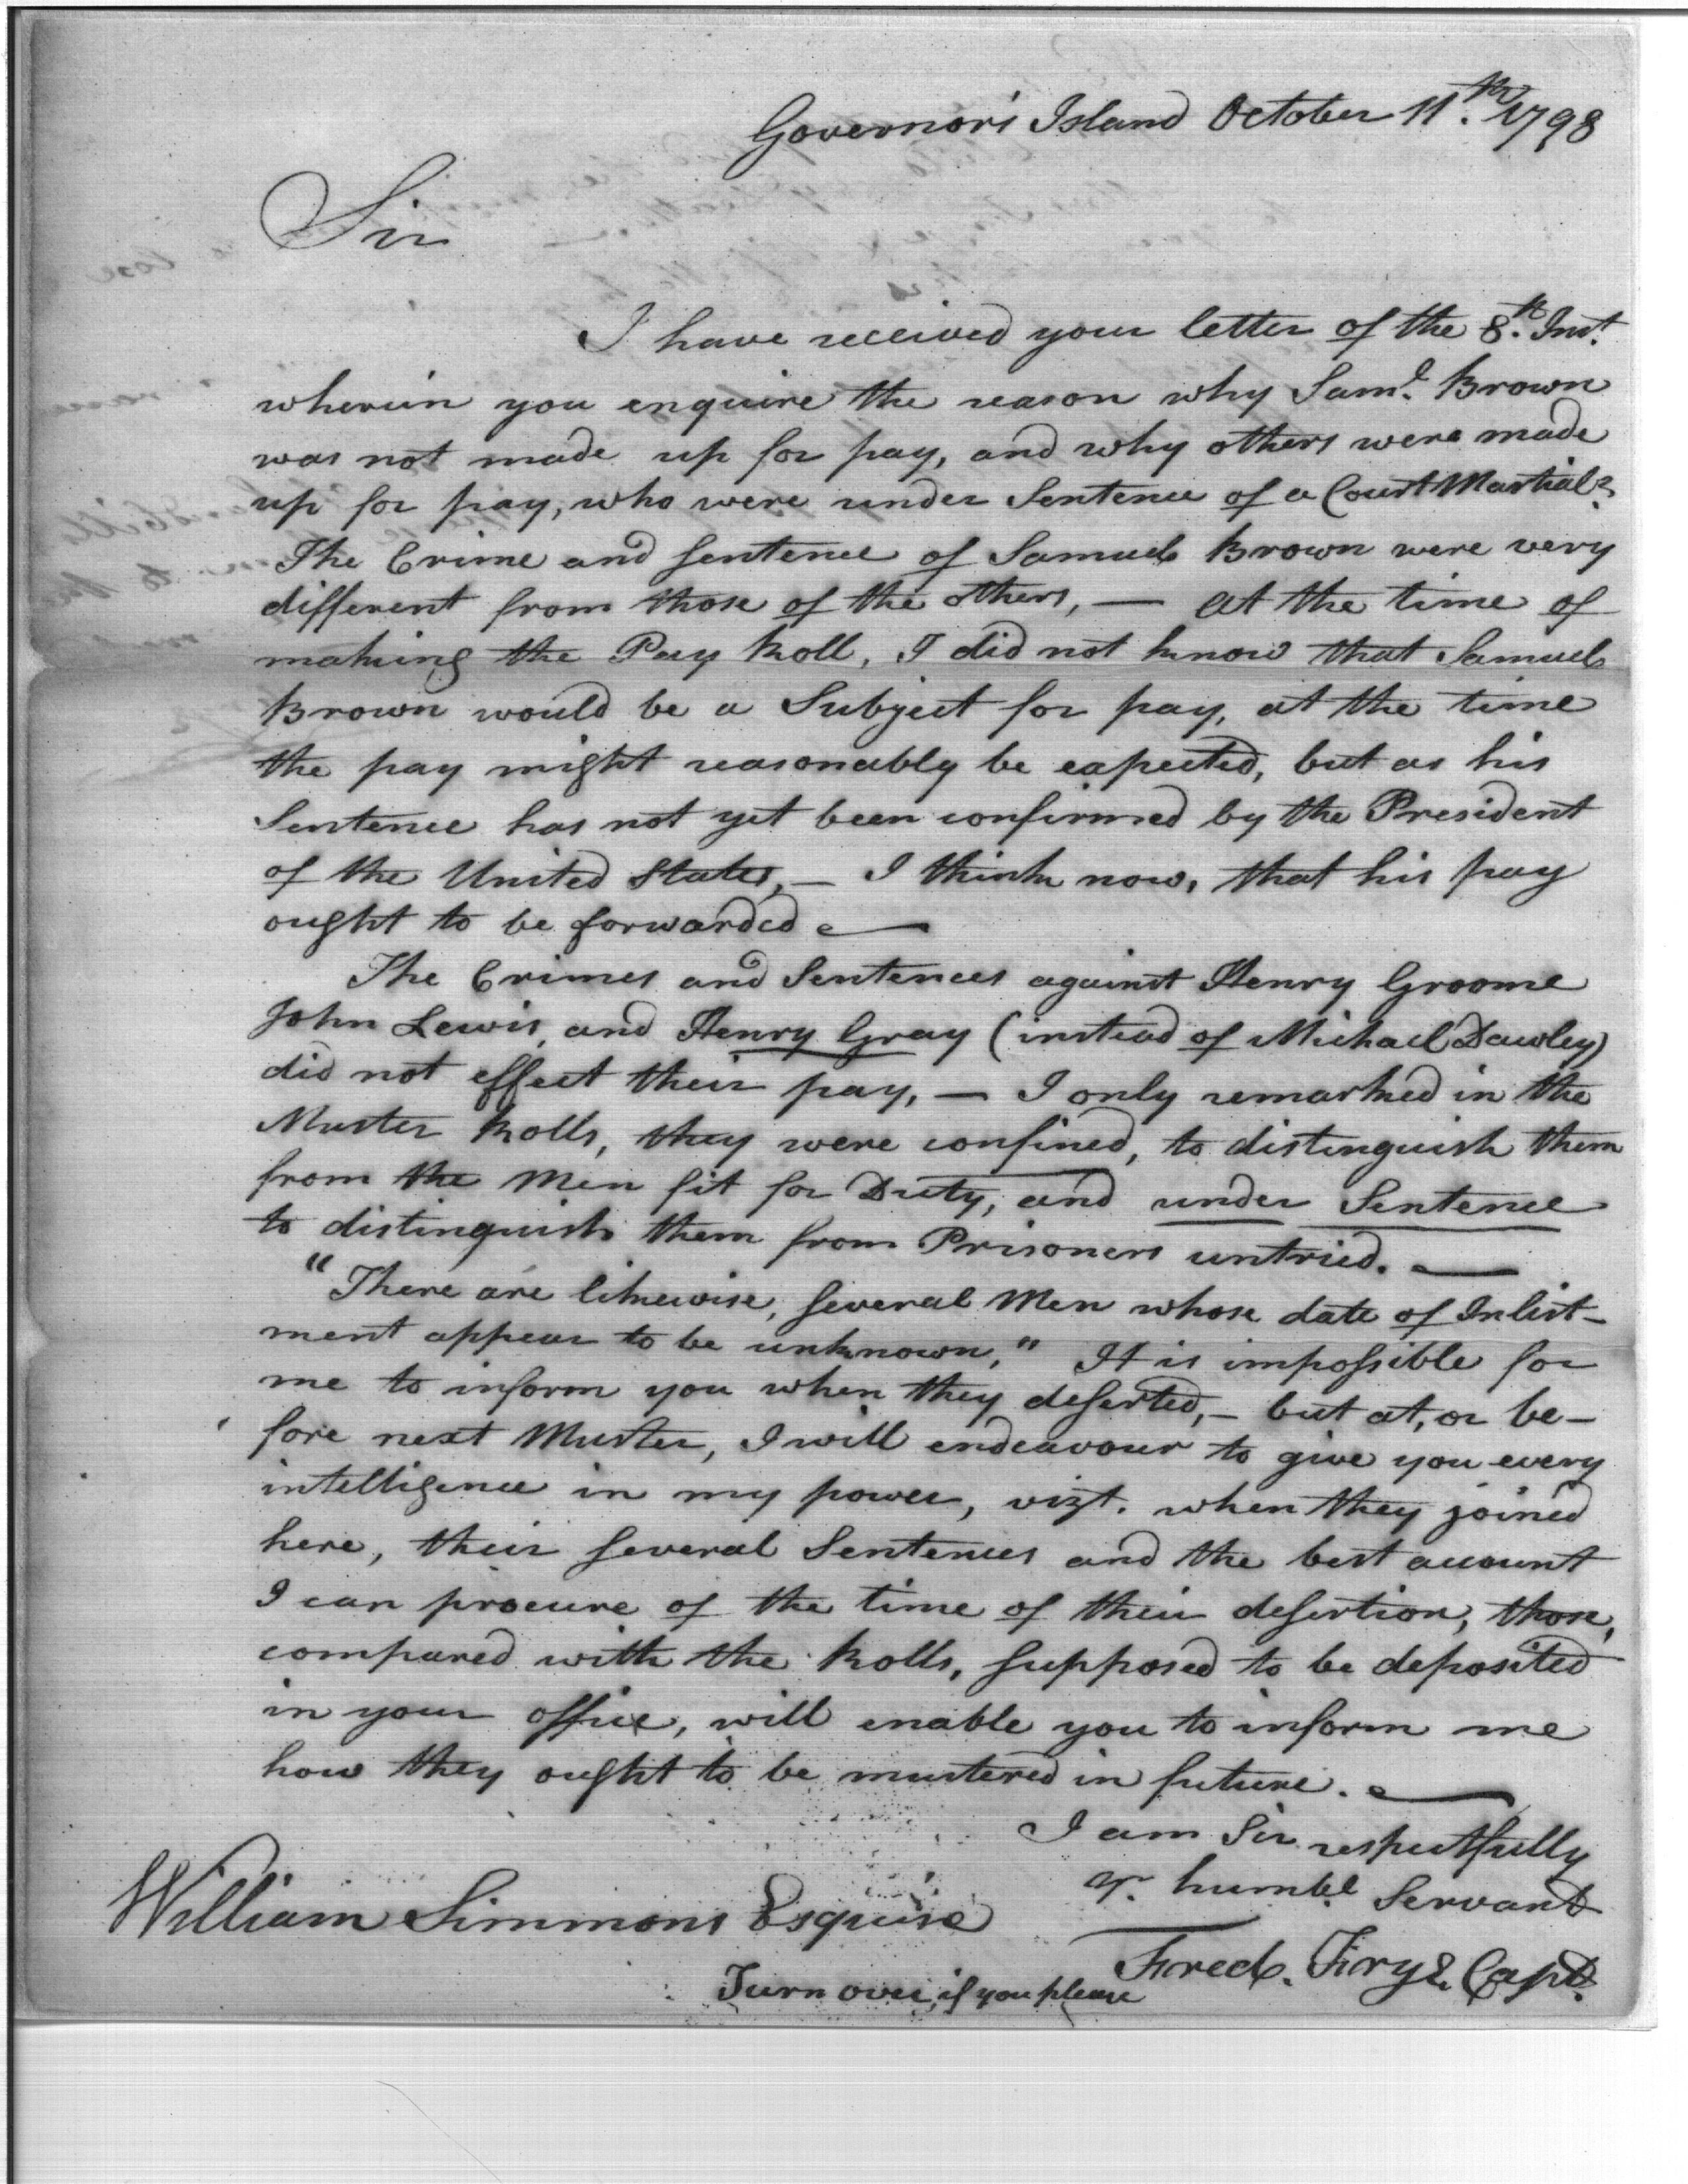 Governor's Island October 11.th 1798
Sir
I have received your letter of the 8.th Inst.
wherein you enquire the reason why Sam.l Brown
was not made up for pay, and why others were made
up for pay, who were under Sentence of a Court Martial?
The Crime and sentence of Samuel Brown were very
different from those of the others, — at the time of
making the Pay Roll, I did not know that Samuel
Brown would be a Subject for pay, at the time
the pay might reasonably be expected, but as his
Sentence has not yet been confirmed by the President
of the United States, — I think now, that his pay
ought to be forwarded —
The Crimes and Sentences against Henry Groome
John Lewis, and Henry Gray (instead of Michael Dawley)
did not effect their pay, — I only remarked in the
Muster Rolls, they were confined, to distinguish them
from the Men fit for Duty, and under Sentence
to distinguish them from Prisoners untried. —
"There are likewise, several Men whose date of Inlist-
ment appear to be unknown," It is impossible for
me to inform you when they deserted, — but at, or be-
fore next Muster, I will endeavour to give you every
intelligence in my power, vizt. when they joined
here, their several Sentences and the best account
I can procure of the time of their desertion, those,
compared with the Rolls, supposed to be deposited
in your office, will enable you to inform me
how they ought to be mustered in future. —
I am Sir respectfully
Yr. humble Servant
William Simmons Esquire
Fredk. Frye Capt.
Turn over, if you please